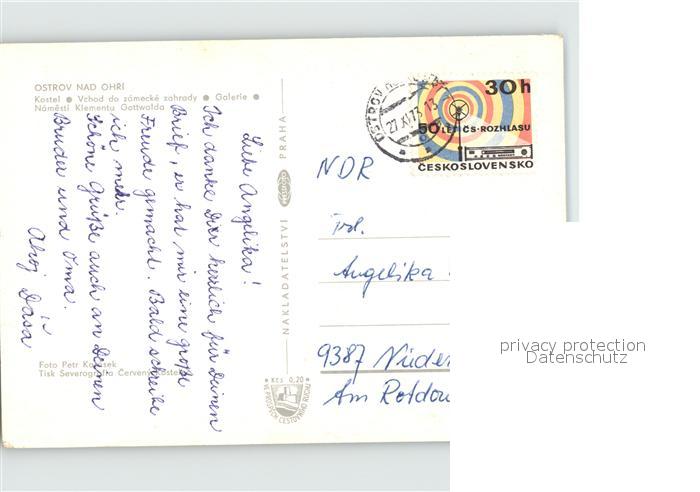 OSTROV NAD OHŘÍ
Kostel ● Vchod do zámecké zahrady ● Galerie ●
Náměstí Klementa Gottwalda
Liebe Angelika!
Ich danke Dir herzlich für Deinen
Brief, er hat mir eine große
Freude gemacht. Bald schreibe
ich mehr.
Schöne Grüße auch an Deinen
Bruder und Oma.
Ahoj Dáša
Foto Petr
Tisk Severografia Červený Kostelec
NAKLADATELSTVÍ PRAHA
Kčs 0,20
30h
50 LET ČS. ROZHLASU
ČESKOSLOVENSKO
27.XI.73-13
NDR
Angelika
9387
Am
privacy protection
Datenschutz